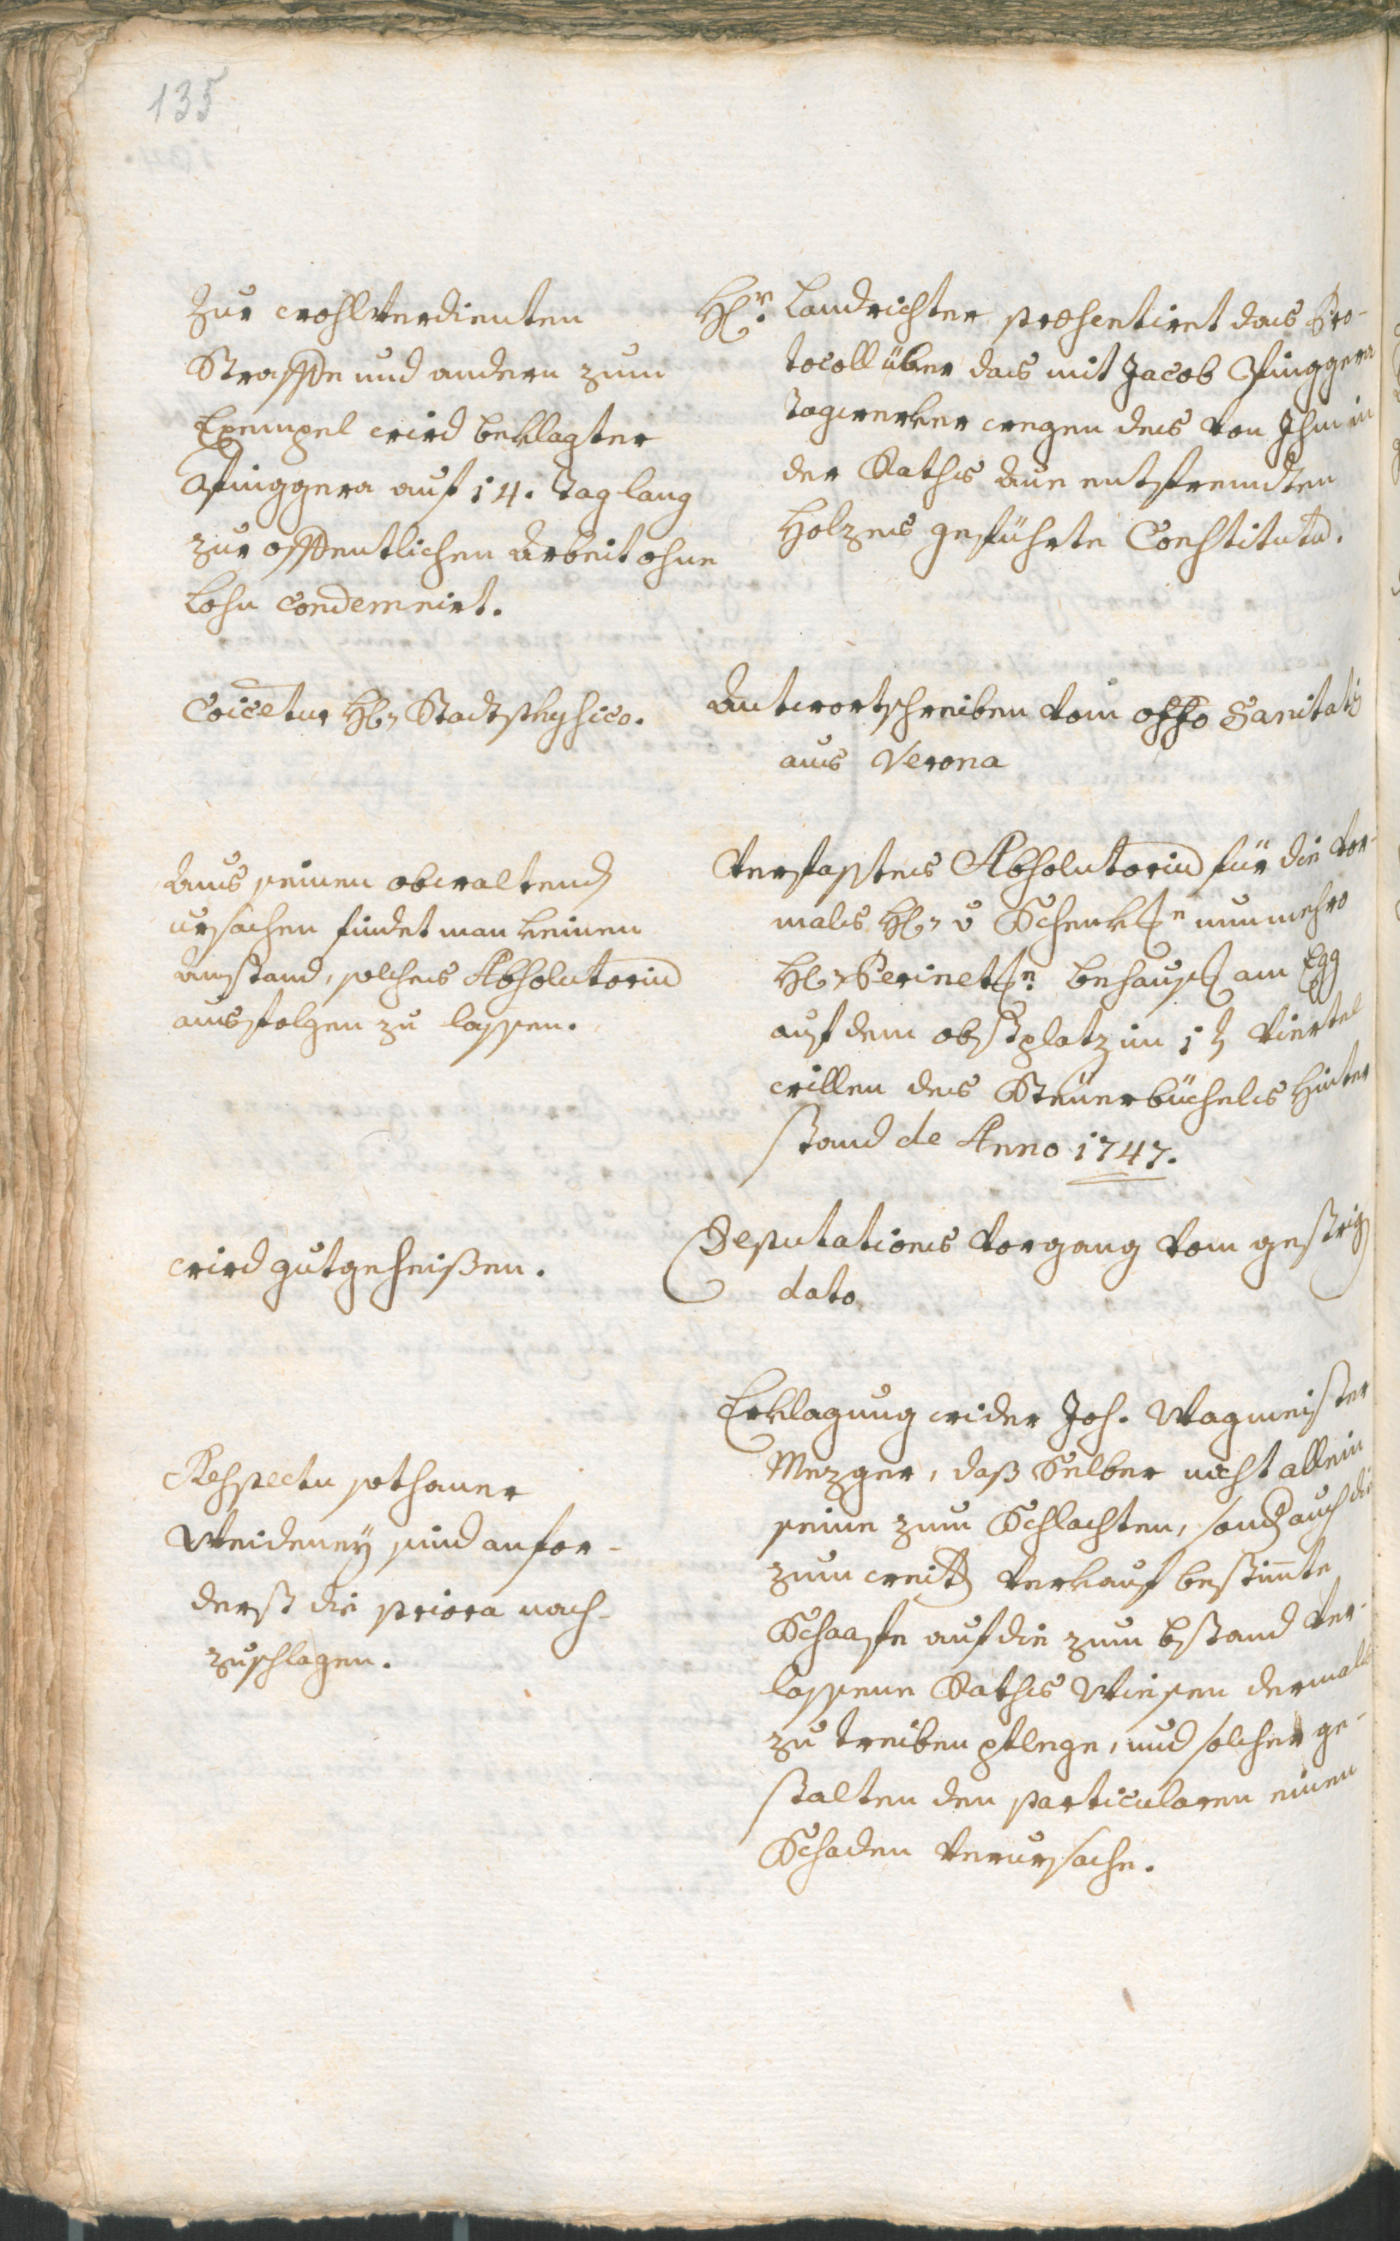 135
Zur wohlverdienten
Straffe und andern zum
Exempel wird beklagter
Pfinggera auf 14. Tag lang
zur offentlichen Arbeit ohne
Lohn condemnirt.
Hr. Landrichter præsentiret das Pro-
tocoll über das mit Jacob Pfinggera
Tagwerker wegen des von Ihm in
der Raths Aue entfremdten
Holzes geführte Constitutū.
Coicetur H: Stadtphysico.
Antwortschreiben vom offo Sanitatis
aus Verona
Aus seinen obwaltend
ursachen findet man keinen
Anstand, solches Absolutoriū
ausfolgen zu lassen.
Verfastes Absolutoriū für die vor-
mals H: v Schenkisn nunmehro
H: Perinetisn behausung am Egg
auf dem obstplatz im 1ten viertel
willen des Steüerbüchels Hinter
stand de Anno 1747.
wird gutgeheißen.
Deputations vorgang vom gestrig
dato
Respectu sothaner
Weideney sind anfor-
derst die priora nach-
zuschlagen.
Erklagung wider Joh. Wagmeister
Mezger, daß Selber nicht allein
seine zum Schlachten, sond auch die
zum weitn verkauf bestim̄te
Schaafe auf die zum bstand ver-
lassene Raths Wiesen dermals
zu treiben pflege, und solcher ge-
stalten den particularen einen
Schaden verursache.